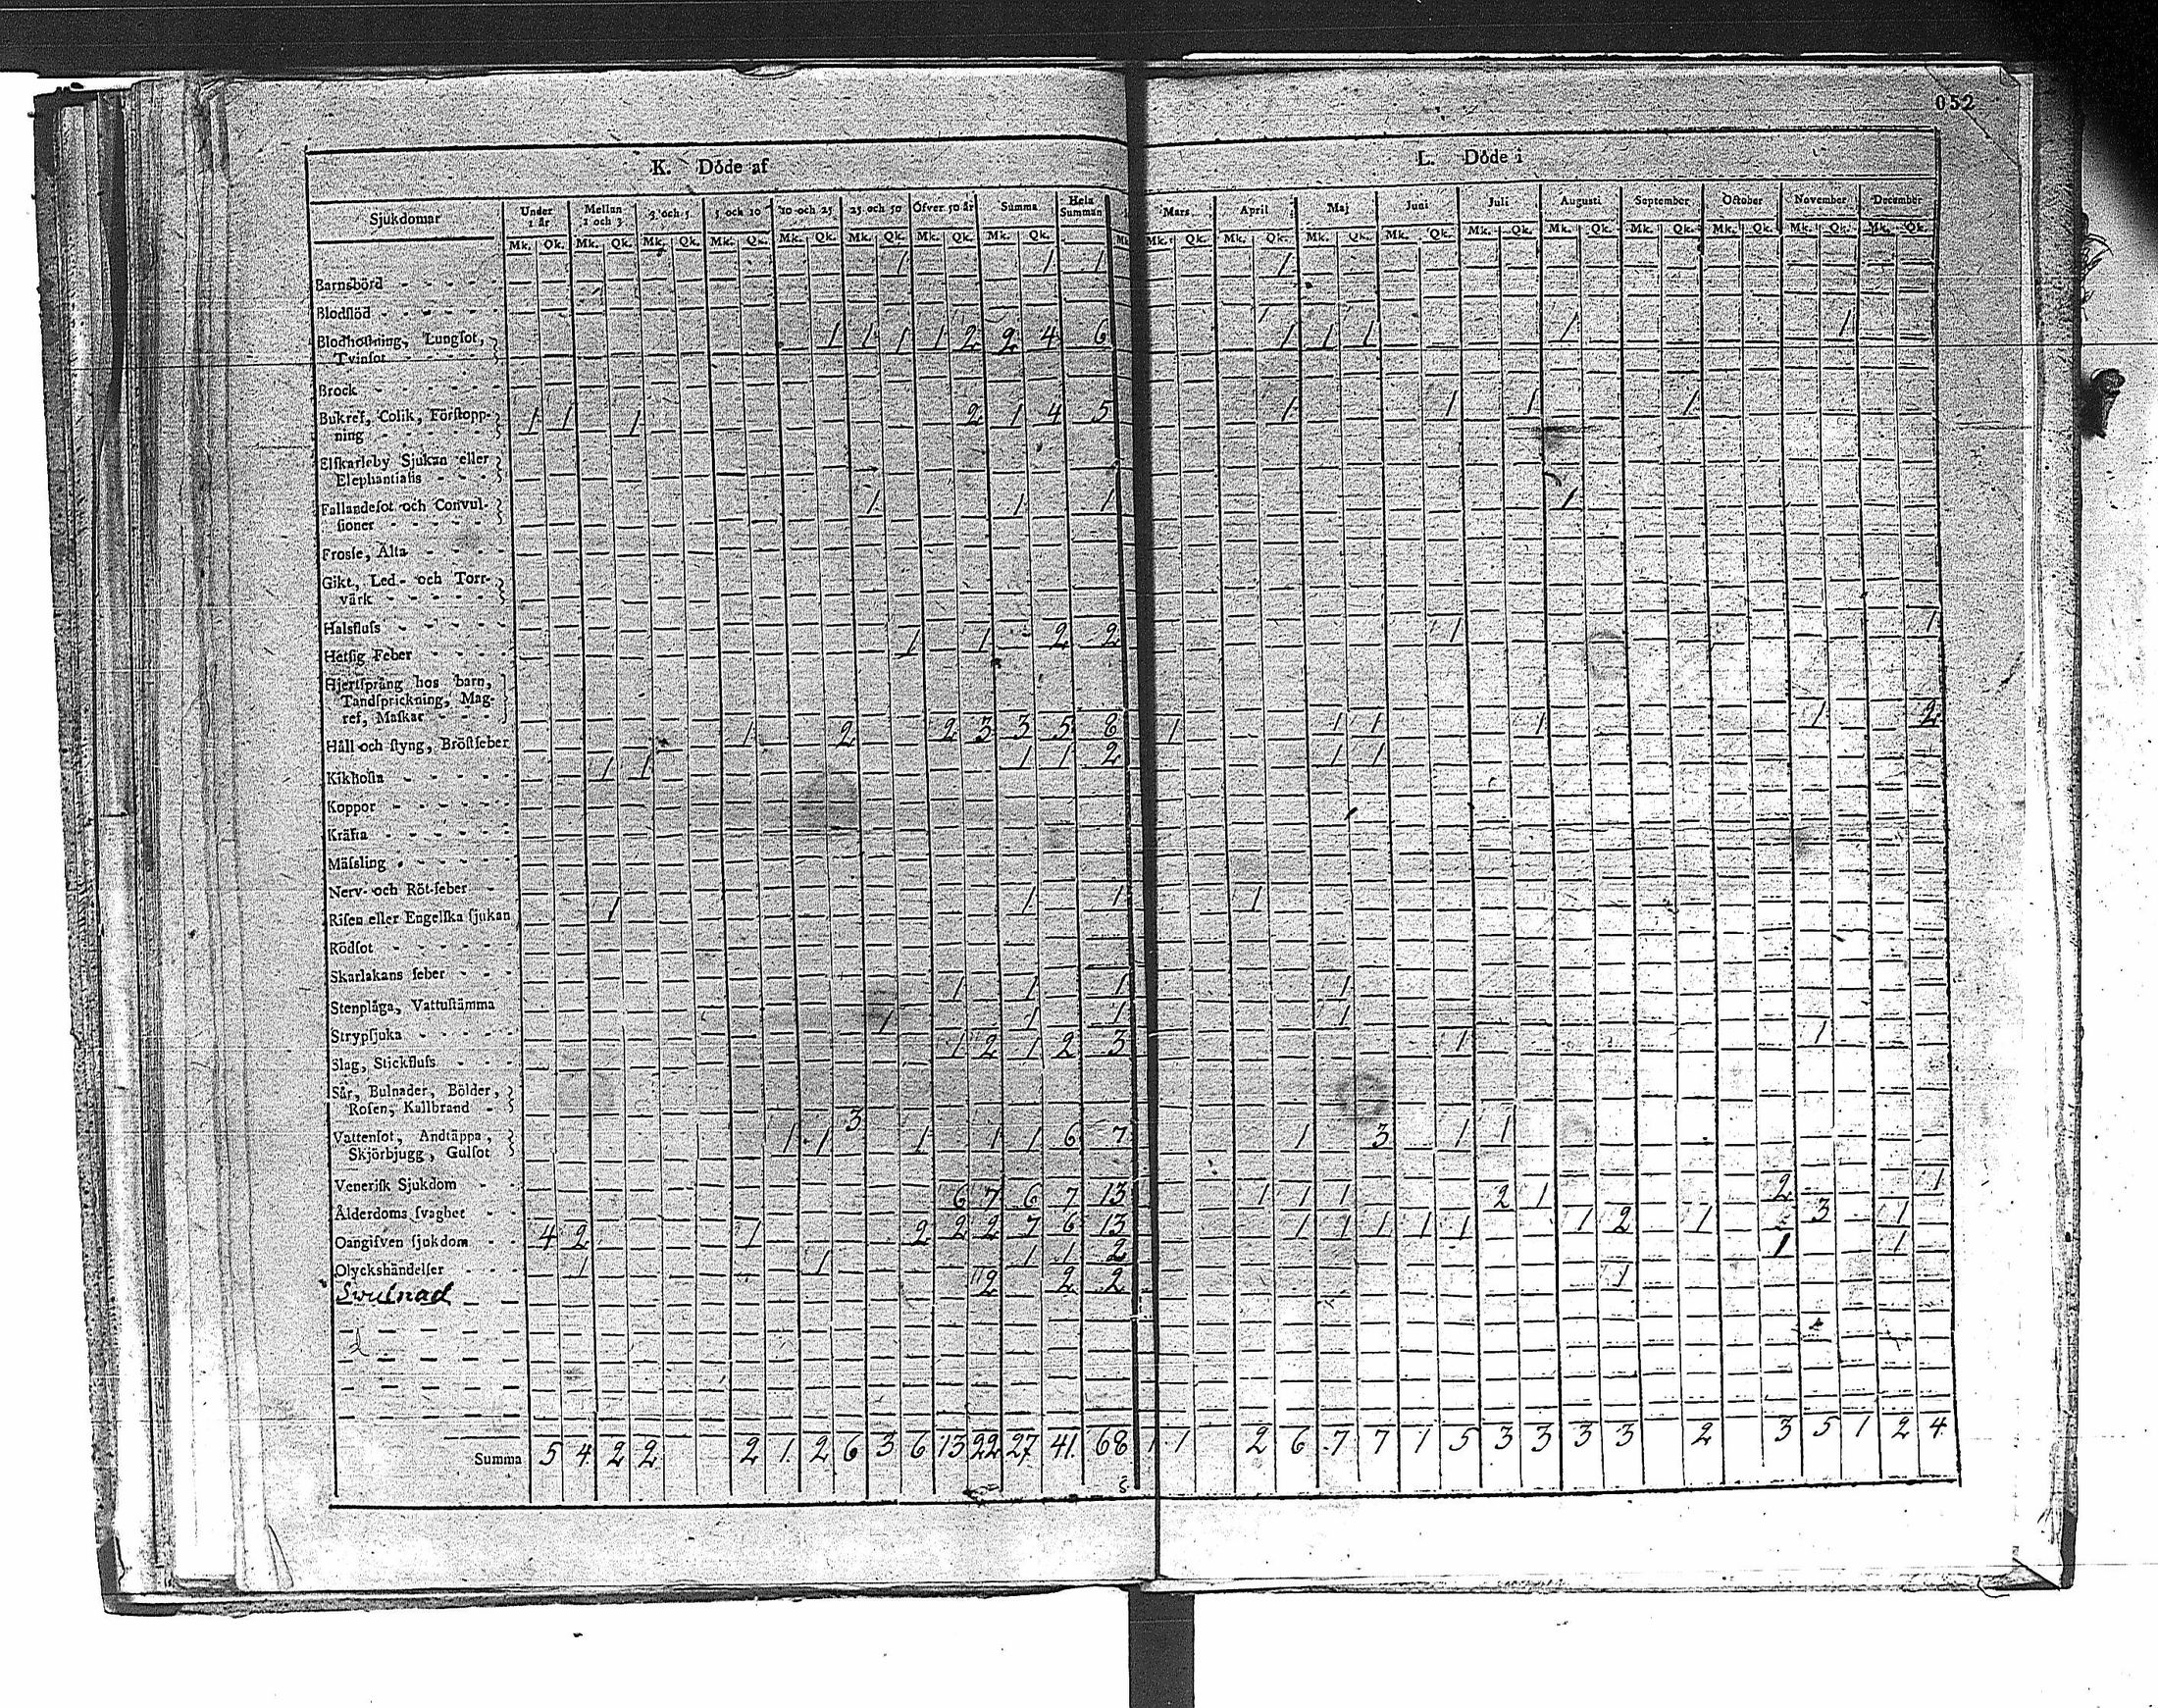 052
K. Döde af
L. Döde i
Sjukdomar Under 1 år Mellan 1 och 3 3 och 5 5 och 10 10 och 25 25 och 50 Öfver 50 år Summa Hela Summan Mars April Maj Juni Juli Augusti September October November December
Mk. Qk. Mk. Qk. Mk. Qk. Mk. Qk. Mk. Qk. Mk. Qk. Mk. Qk. Mk. Qk. Mk. Mk. Qk. Mk. Qk. Mk. Qk. Mk. Qk. Mk. Qk. Mk. Qk. Mk. Qk. Mk. Qk. Mk. Qk. Mk. Qk.
Barnsbörd 1 1 1 1
Blodflöd
Blodhostning, Lungsot,
Tvinsot 1 1 1 1 2 2 4 6 1 1 1 1 1
Brock
Bukref, Colik, Förstopp-
ning 1 1 1 2 1 4 5 1 1 1 1
Elfkarleby Sjukan eller
Elephantiasis
Fallandesot och Convul-
sioner 1 1 1 1
Frossa, Älta
Gikt, Led- och Torr-
värk
Halsfluss
Hetsig Feber 1 1 2 2 1 1
Hjertsprång hos barn,
Tandsprickning, Mag-
ref, Maskar
Håll och styng, Bröstfeber 1 2 2 3 3 5 8 1 1 1 1 1 2
Kikhosta 1 1 1 1 2 1 1
Koppor
Kräfta
Mässling
Nerv- och Röt-feber
Risen eller Engelska sjukan 1 1 1 1
Rödsot
Skarlakans feber
Stenplåga, Vattustämma 1 1 1 1
Strypsjuka 1 1 1 1
Slag, Stickfluss 1 2 1 2 3 1 1
Sår, Bulnader, Bölder,
Rosen, Kallbrand
Vattensot, Andtäppa,
Skjörbjugg, Gulsot 1 1 3 1 1 1 6 7 1 3 1 1
Venerisk Sjukdom
Ålderdoms svaghet 6 7 6 7 13 1 1 1 2 1 2 1
Oangifven sjukdom 4 2 1 2 2 2 7 6 13 1 1 1 1 1 1 2 1 3 1
Olyckshändelser 1 1 1 1 2 1 1
Swulnad 2 2 2 1
Summa 5 4 2 2 2 1 2 6 3 6 13 22 27 41 68 1 1 2 6 7 7 1 5 3 3 3 3 2 3 5 1 2 4